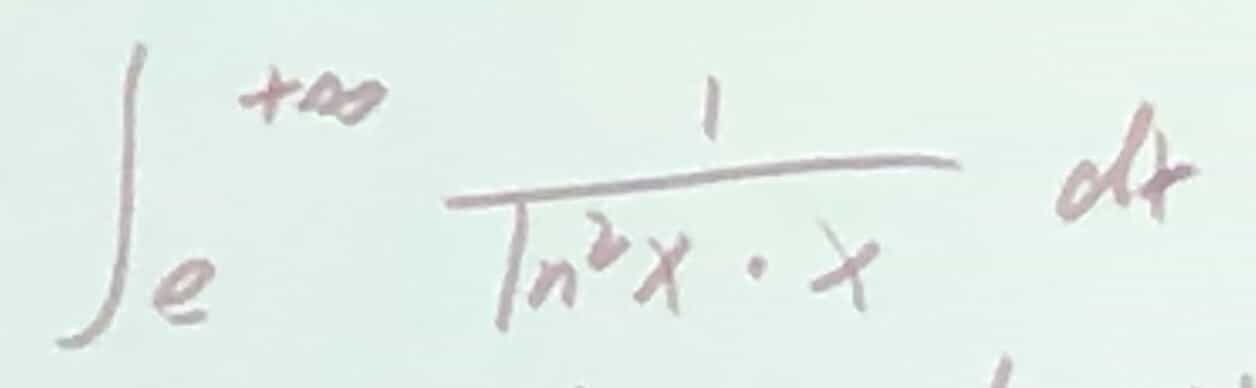 ∫_e^{+∞} \frac{1}{ln^2 x · x} dx